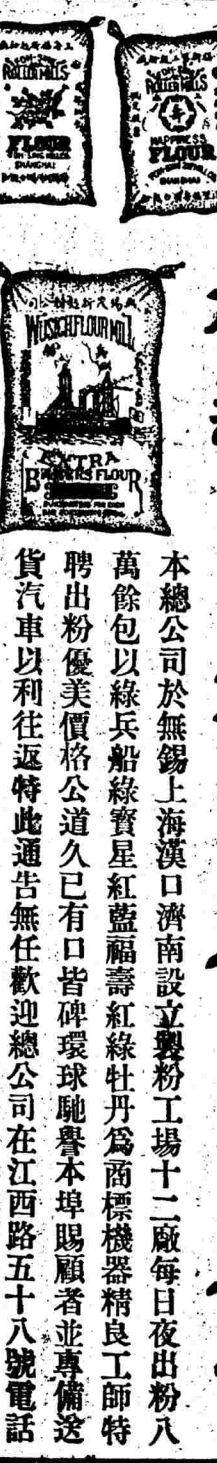 FOH SING
ROLLER MILLS
FLOUR
FOH SING MILL CO.
SHANGHAI
ROLLER MILLS
HAPPINESS
FLOUR
SHANGHAI
WUSICH FLOUR MILL
兵
EXTRA
BAKERS FLOUR
本總公司於無錫上海漢口濟南設立製粉工場十二廠每日夜出粉八
萬餘包以綠兵船綠寶星紅藍福壽紅綠牡丹爲商標機器精良工師特
聘出粉優美價格公道久已有口皆碑環球馳譽本埠賜顧者並專備送
貨汽車以利往返特此通告無任歡迎總公司在江西路五十八號電話